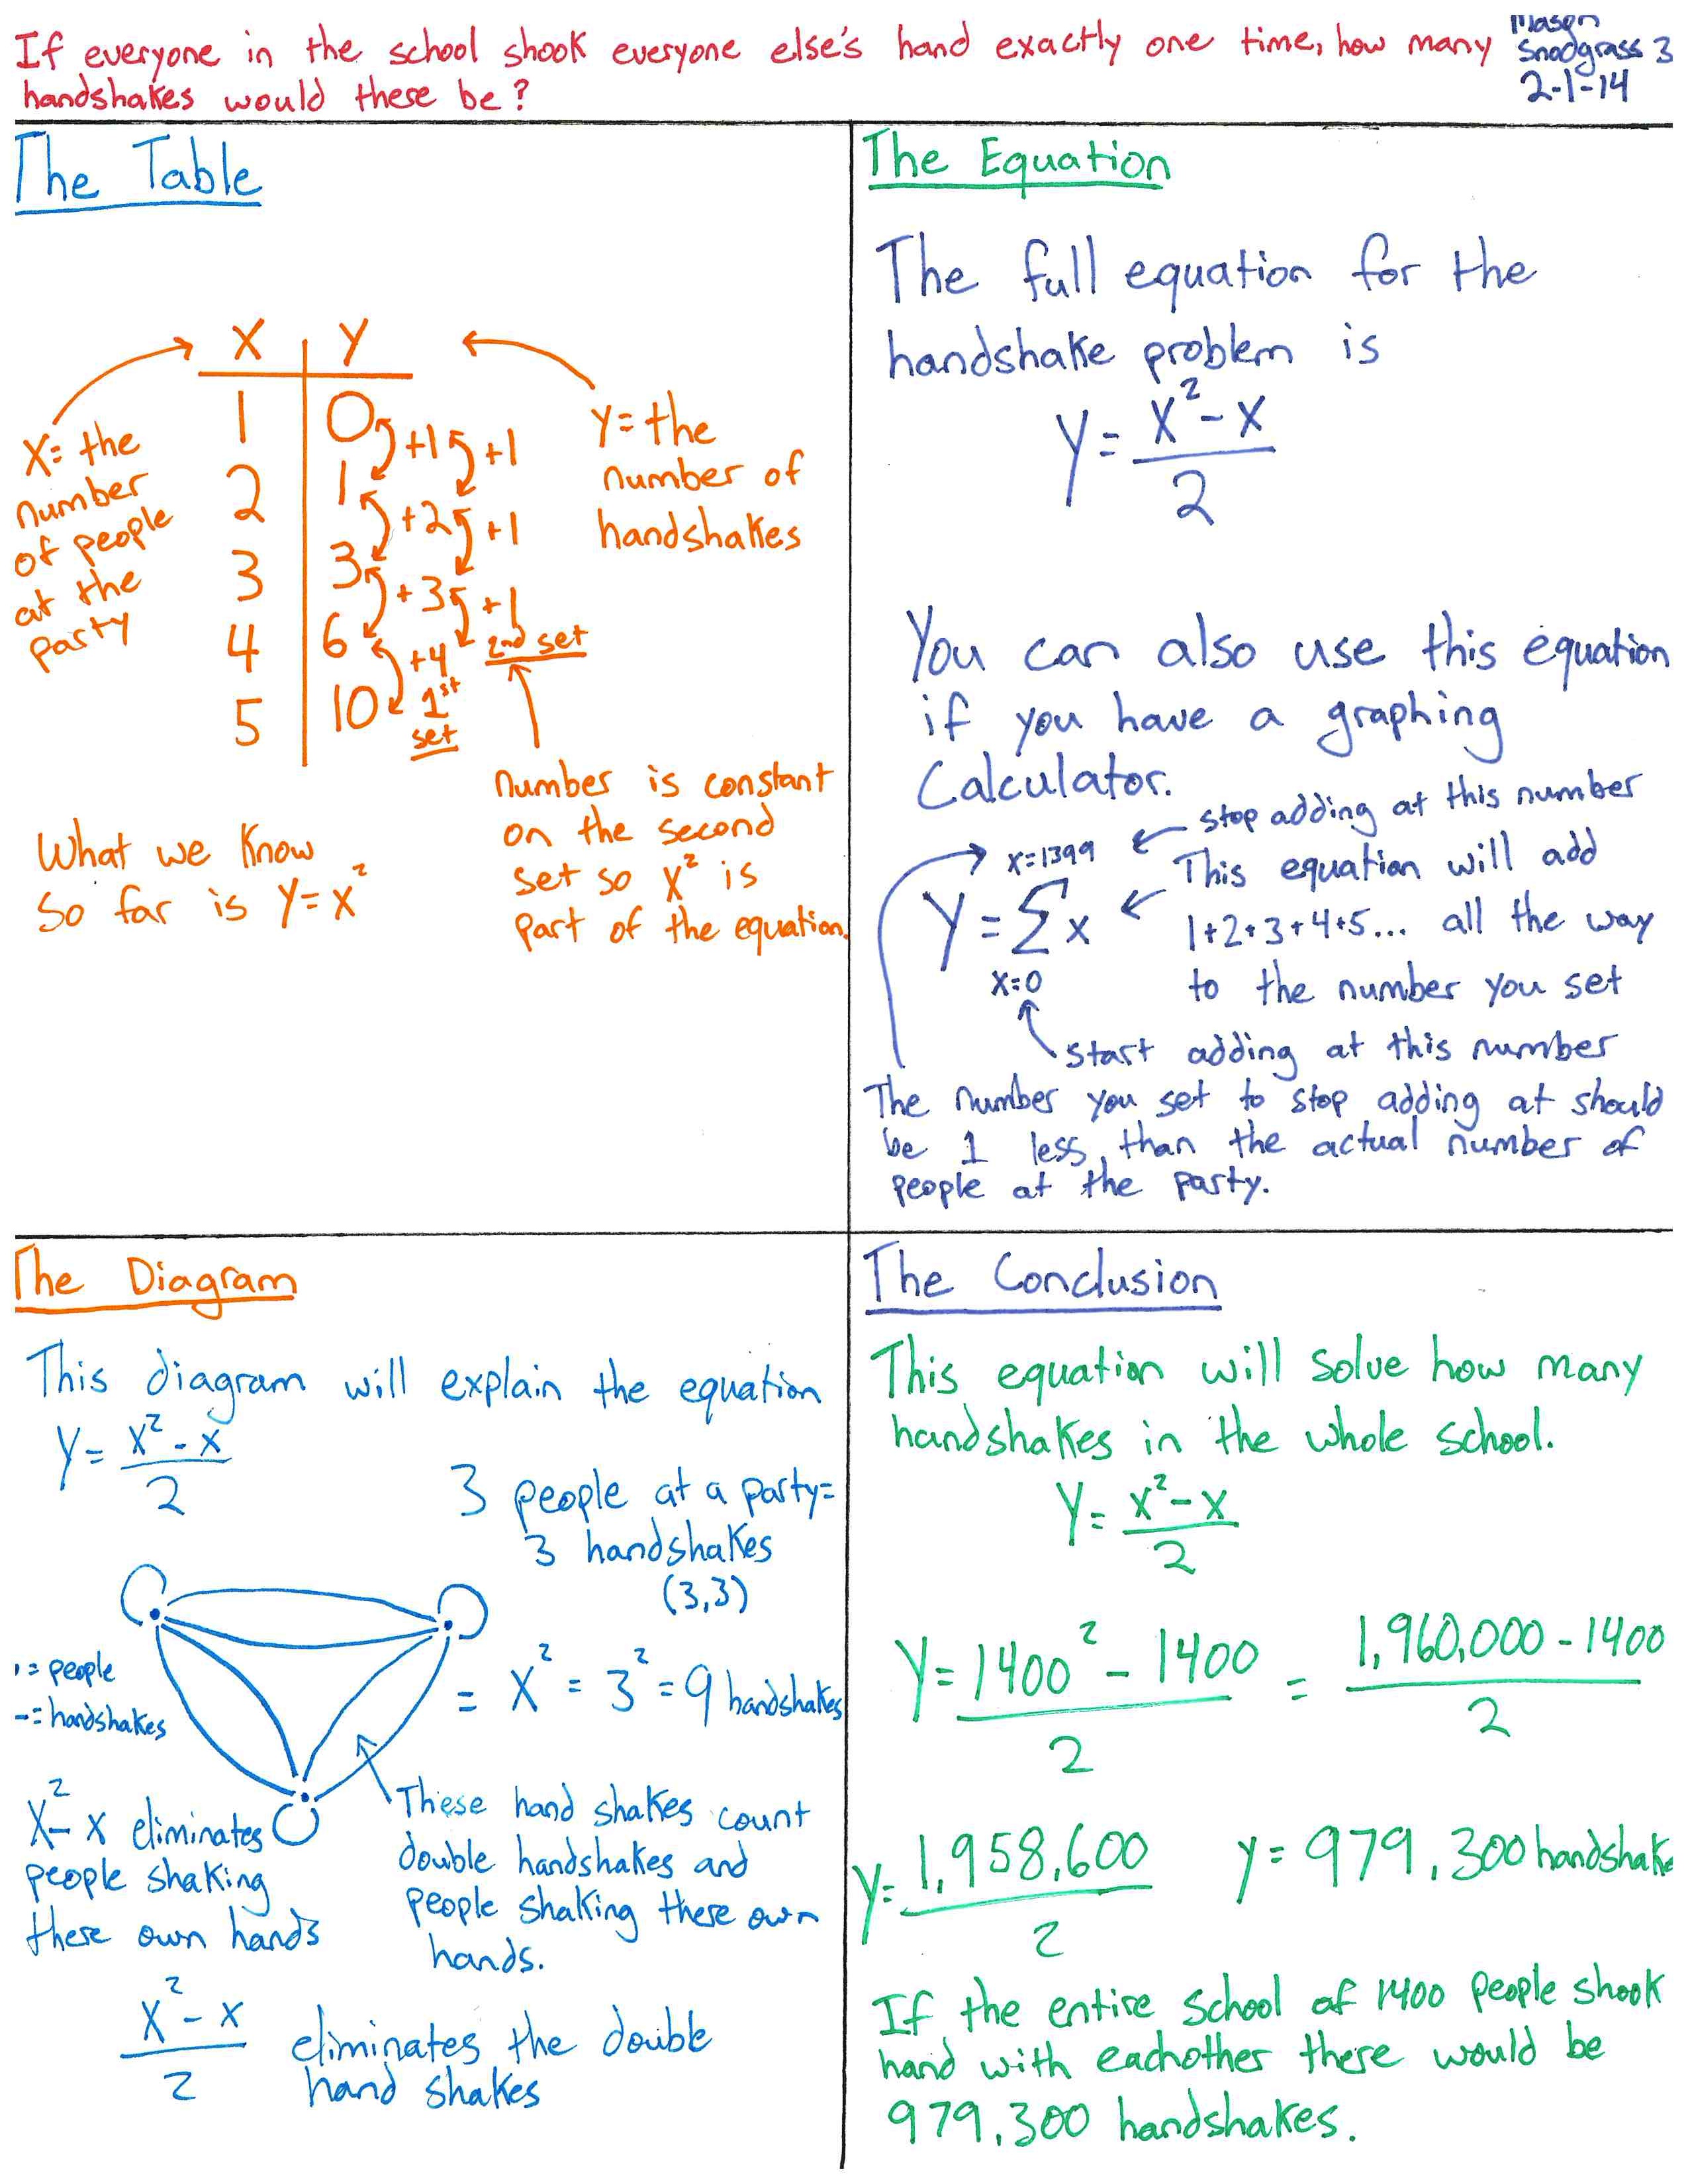 If everyone in the school shook everyone else's hand exactly one time, how many
handshakes would there be?
Mason
Snodgrass 3
2-1-14
The Table
X Y
1 0
2 1
3 3
4 6
5 10
+1
+2
+3
+4
1st
set
+1
+1
+1
2nd set
X= the
number
of people
at the
party
Y= the
number of
handshakes
number is constant
on the second
set so X² is
part of the equation.
What we know
so far is Y=X²
The Equation
The full equation for the
handshake problem is
Y= X²-X
2
You can also use this equation
if you have a graphing
Calculator.
stop adding at this number
x=1399
Y=Σx
x=0
This equation will add
1+2+3+4+5... all the way
to the number you set
start adding at this number
The number you set to stop adding at should
be 1 less than the actual number of
people at the party.
The Diagram
This diagram will explain the equation
Y= X²-X
2
3 people at a party=
3 handshakes
(3,3)
= people
-= handshakes
= X² = 3² = 9 handshakes
X²-X eliminates
people shaking
there own hands
These hand shakes count
double handshakes and
people shaking there own
hands.
X²-X
2
eliminates the double
hand shakes
The Conclusion
This equation will solve how many
handshakes in the whole school.
Y= X²-X
2
Y= 1400² - 1400 = 1,960,000 - 1400
2 2
Y= 1,958,600
2
y= 979,300 handshake
If the entire school of 1400 people shook
hand with eachother there would be
979,300 handshakes.